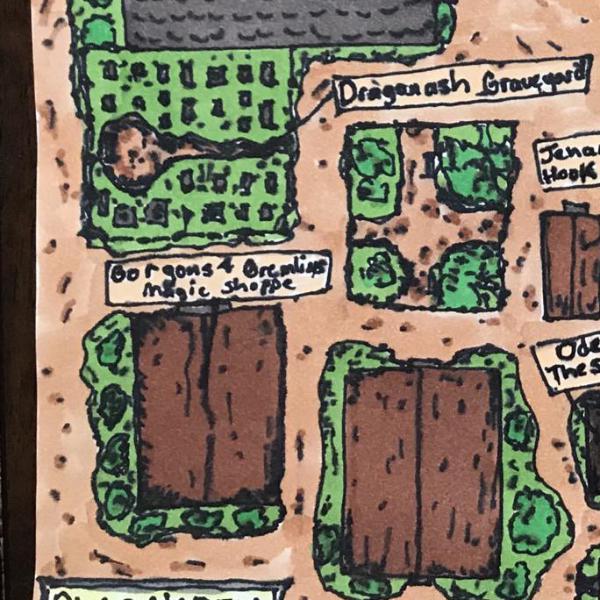 Dragonash Graveyard
Jena
Hook
Gorgons & Gremlins
Magic Shoppe
Ode
Thes